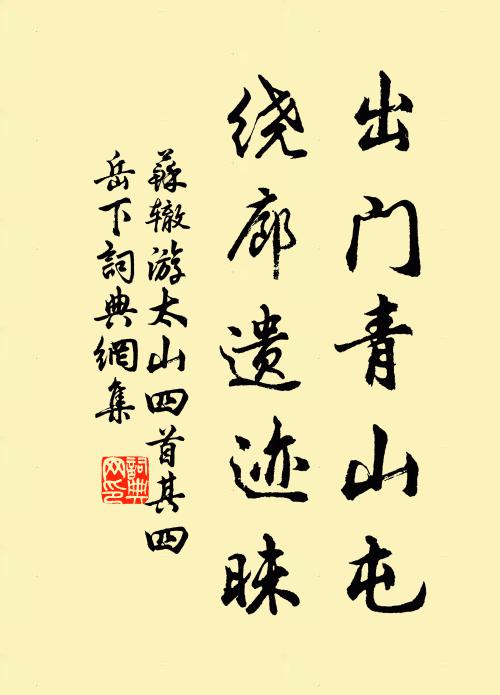 出门青山屯
绕廊遗迹昧
蘇辙游太山四首其四
岳下詞典網集
詞典网印